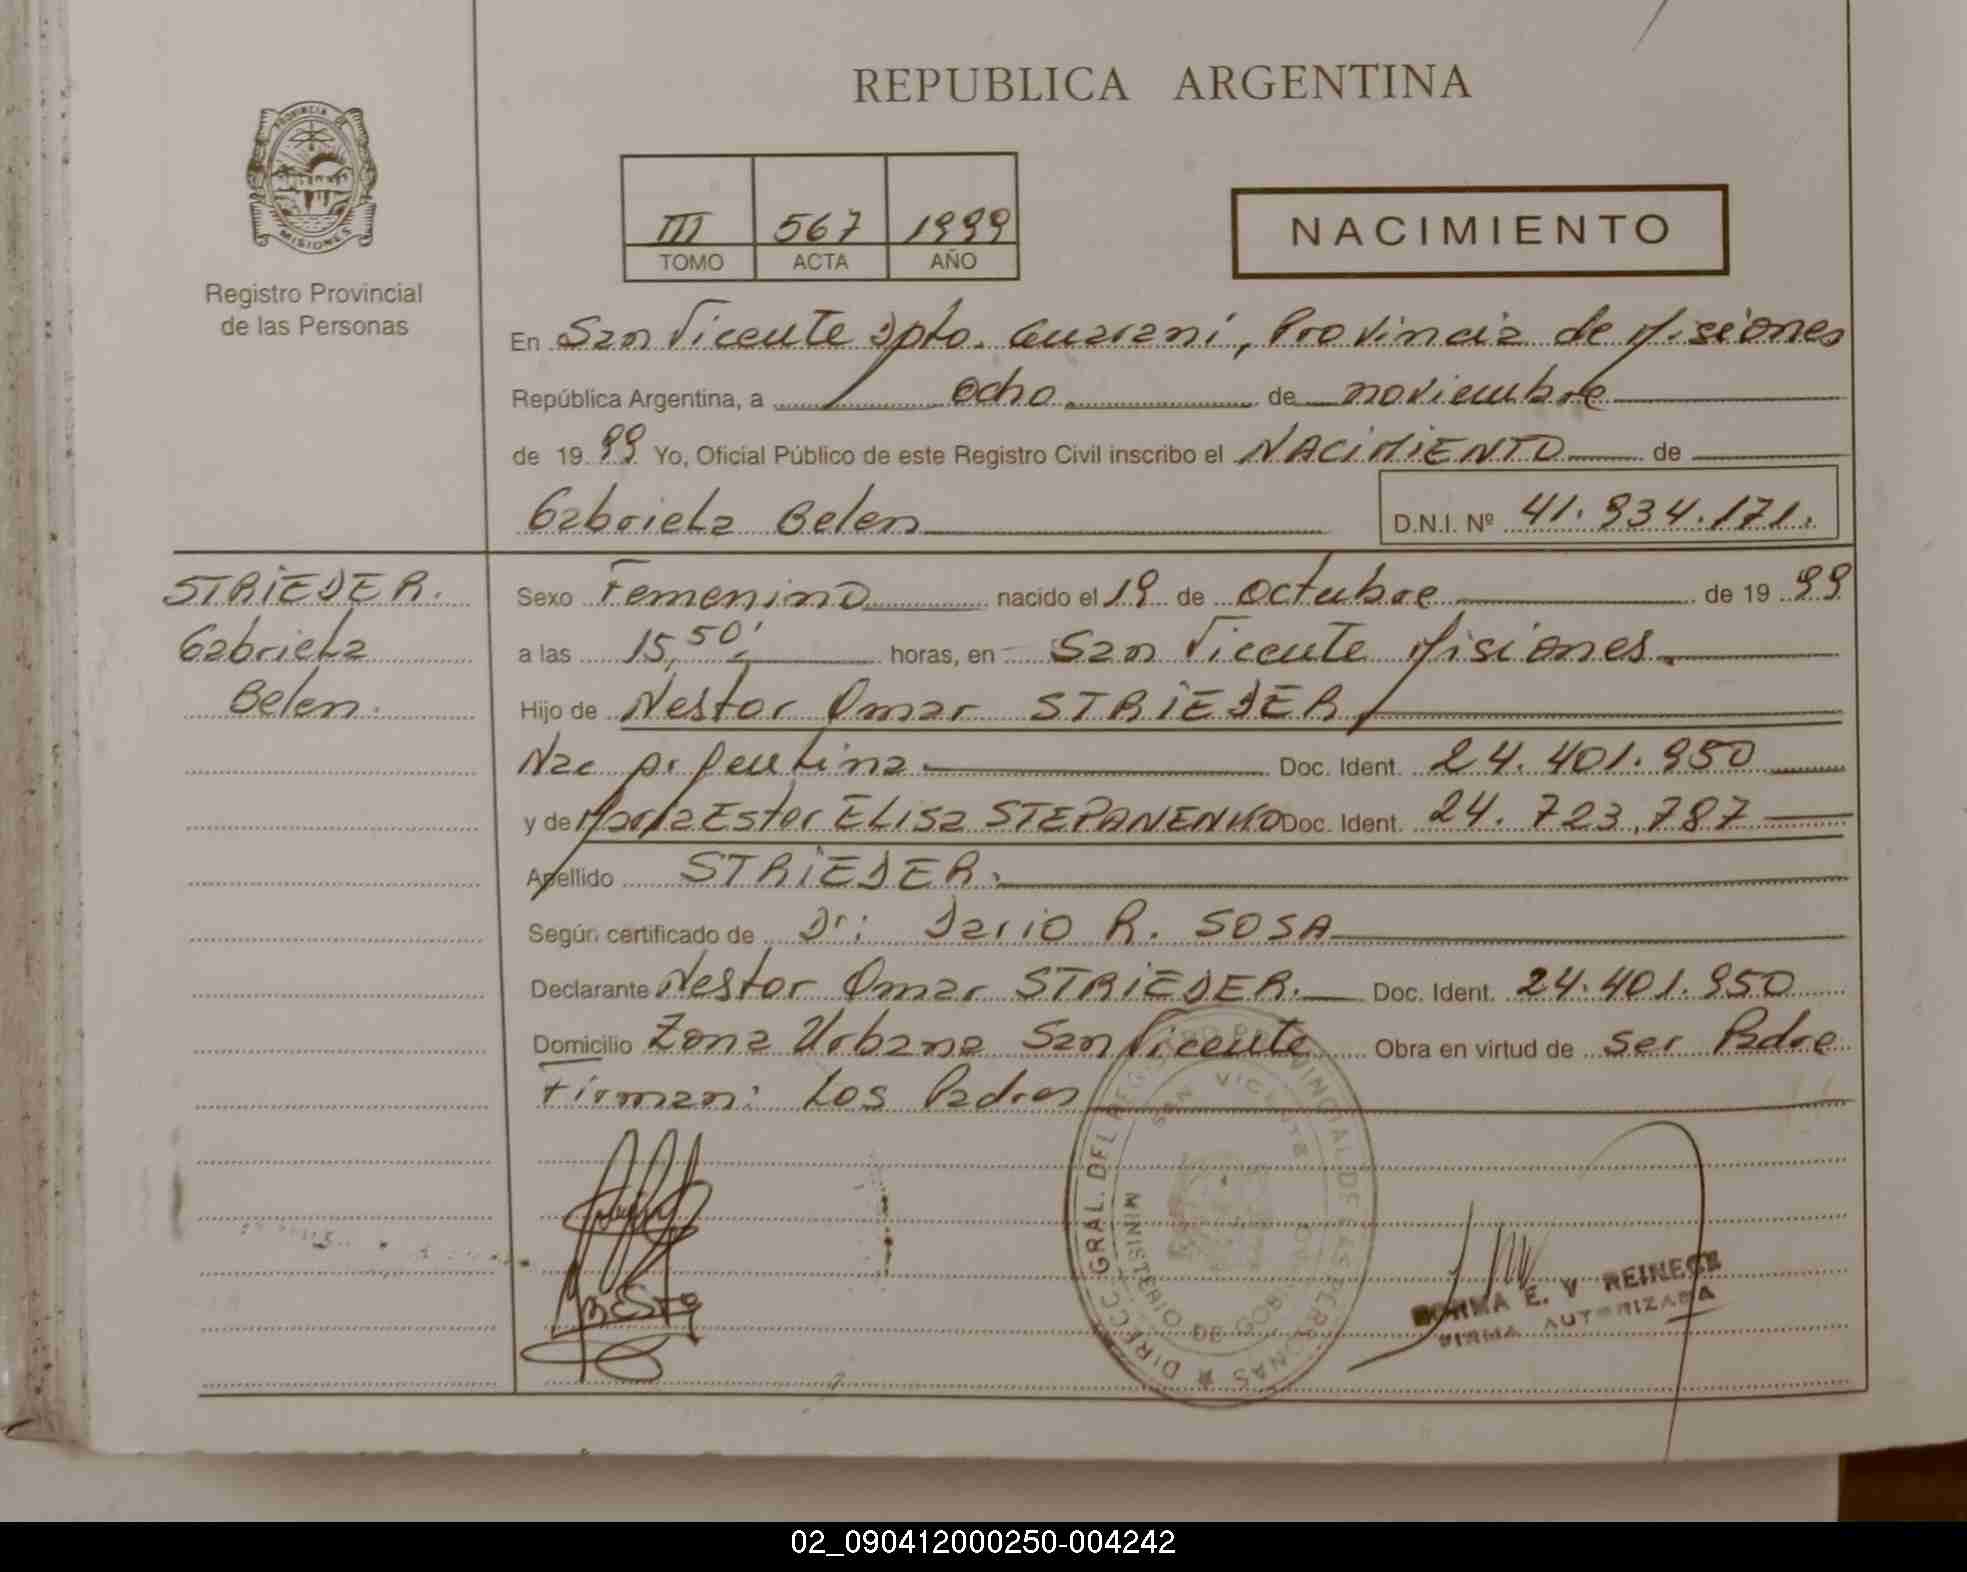 REPUBLICA ARGENTINA
PROVINCIA DE
MISIONES
Registro Provincial
de las Personas
III 567 1999
TOMO ACTA AÑO
NACIMIENTO
En San Vicente Dpto. Guarani, Provincia de Misiones
República Argentina, a ocho de noviembre
de 1999 Yo, Oficial Público de este Registro Civil inscribo el NACIMIENTO de
Gabriela Belen D.N.I. Nº 41.934.171.
STRIEDER.
Gabriela
Belen.
Sexo Femenino nacido el 19 de octubre de 1999
a las 15,50' horas, en San Vicente Misiones.
Hijo de Nestor Omar STRIEDER
Nac Argentina Doc. Ident. 24.401.950
y de Maria Ester ELisa STEPANENKO Doc. Ident. 24.723.787
Apellido STRIEDER.
Según certificado de Dr: Dario R. SOSA
Declarante Nestor Omar STRIEDER. Doc. Ident. 24.401.950
Domicilio Zona Urbana San Vicente Obra en virtud de ser Padre
Firman: Los Padres
DIRECC GRAL. DEL REGISTRO PROVINCIAL DE LAS PERSONAS
SAN VICENTE
MINISTERIO DE GOBIERNO
NORMA E. V REINECK
FIRMA AUTORIZADA
02_090412000250-004242